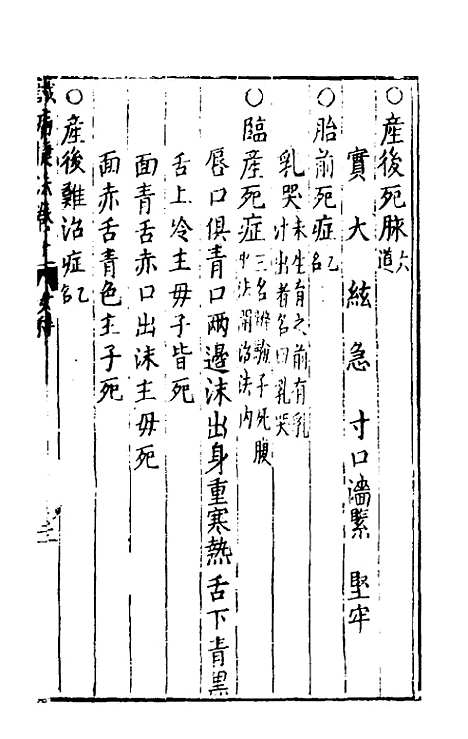 ○產後死脉六道
實大 絃急 寸口濇緊 堅牢
○胎前死症一名
乳哭未生有之前有乳汁出者名曰乳哭
○臨產死症三名辨驗子死腹中法開治法內
唇口俱青口兩邉沫出身重寒熱舌下青黑
舌上冷主毋子皆死
面青舌赤口出沫主毋死
面赤舌青色主子死
○產後難治症一名